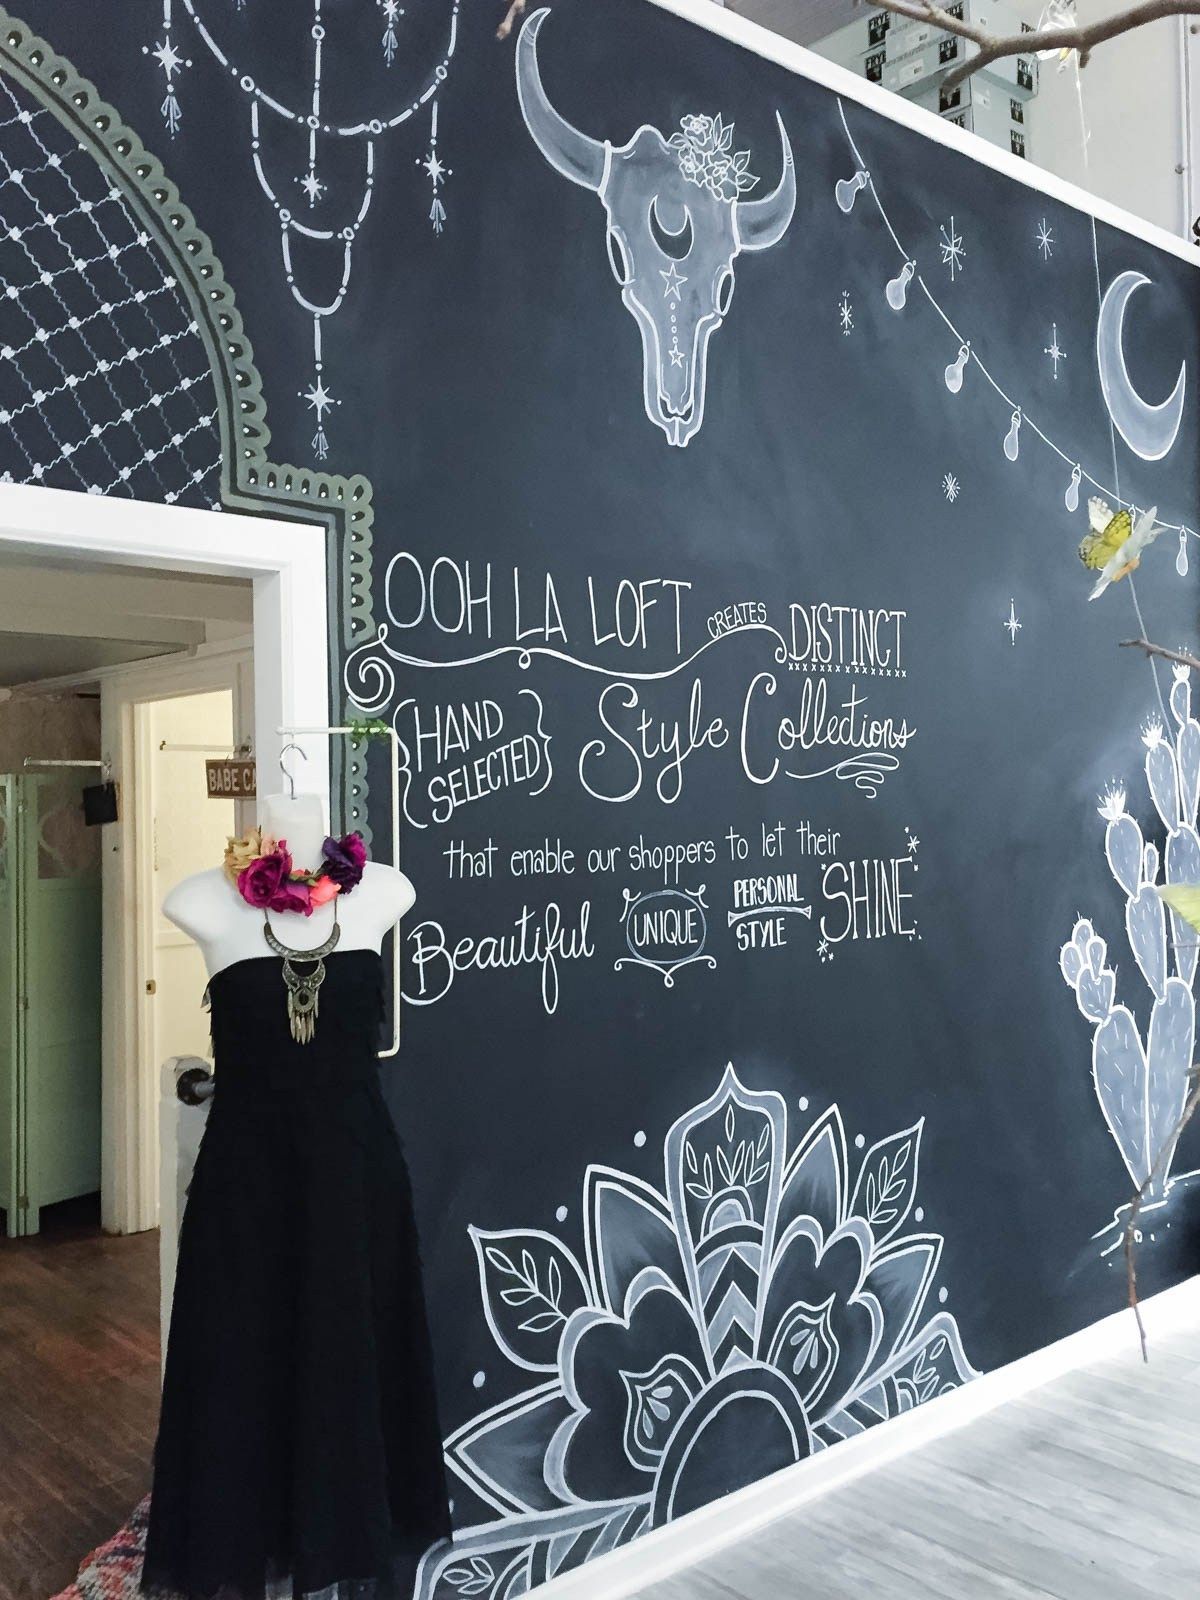 FRYE
FRYE
FRYE
OOH LA LOFT CREATES DISTINCT
{HAND SELECTED} Style Collections
that enable our shoppers to let their
Beautiful UNIQUE PERSONAL STYLE SHINE
BABE